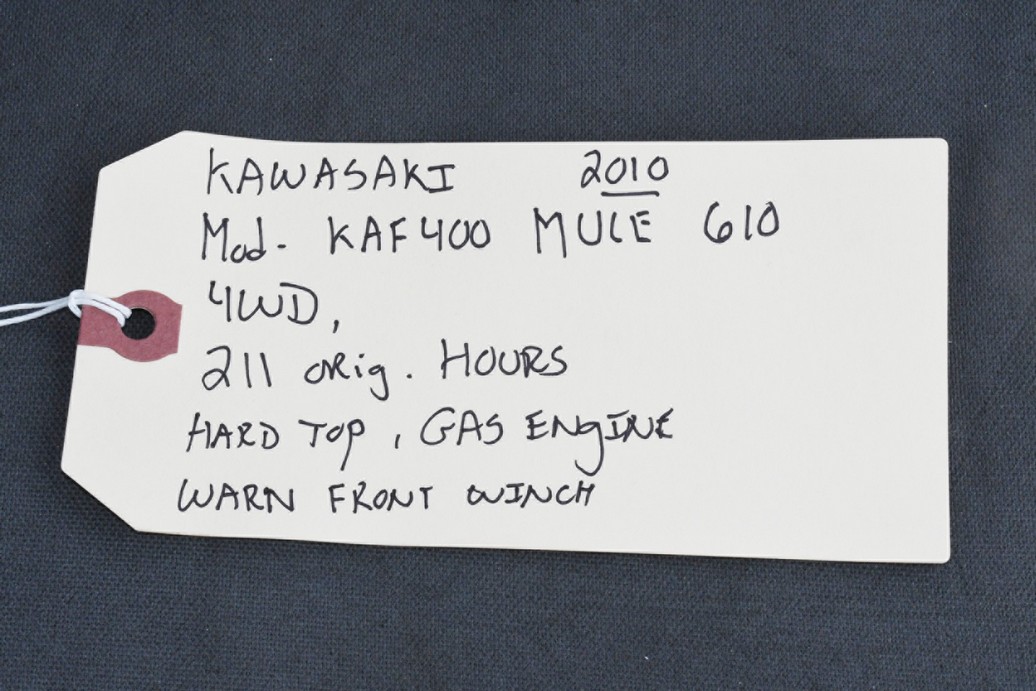 KAWASAKI 2010
Mod. KAF400 MULE 610
4WD,
211 orig. HOURS
HARD TOP, GAS ENgINE
WARN FRONT WINCH